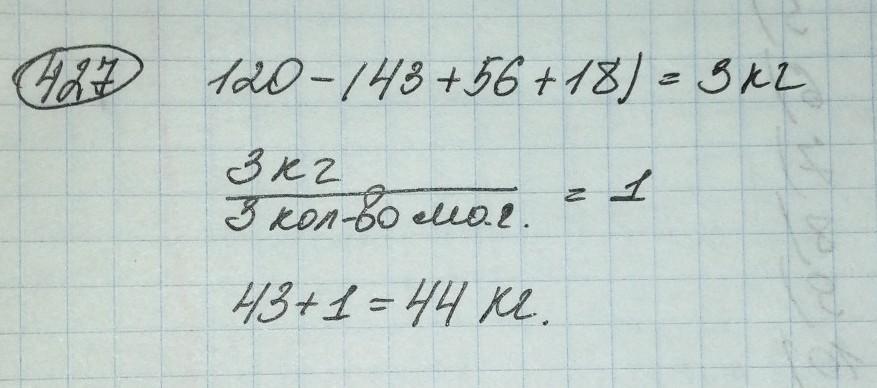 427 120 - (43 + 56 + 18) = 3 кг
3 кг
3 кол-во маг. = 1
43 + 1 = 44 кг.